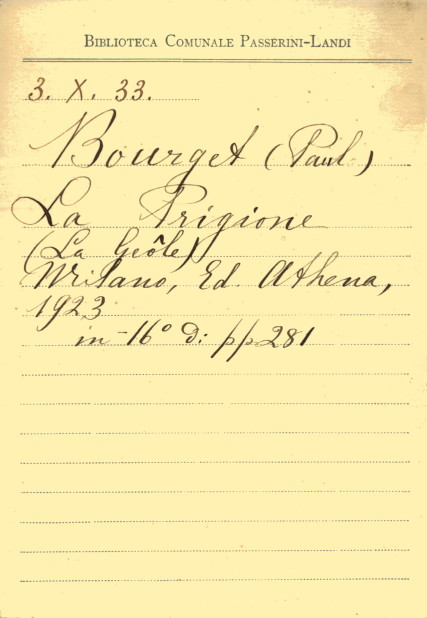 BIBLIOTECA COMUNALE PASSERINI-LANDI
3. X. 33.
Bourget (Paul)
La Prigione
(La Geôle)
Milano, Ed. Athena,
1923
in-16° di pp. 281